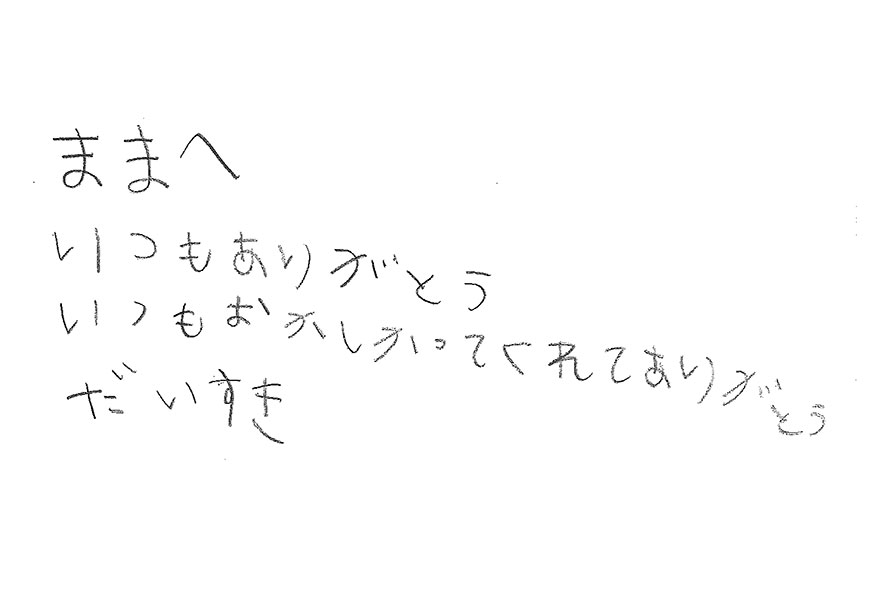 ままへ
いつもありがとう
いつもおかしかってくれてありがとう
だいすき